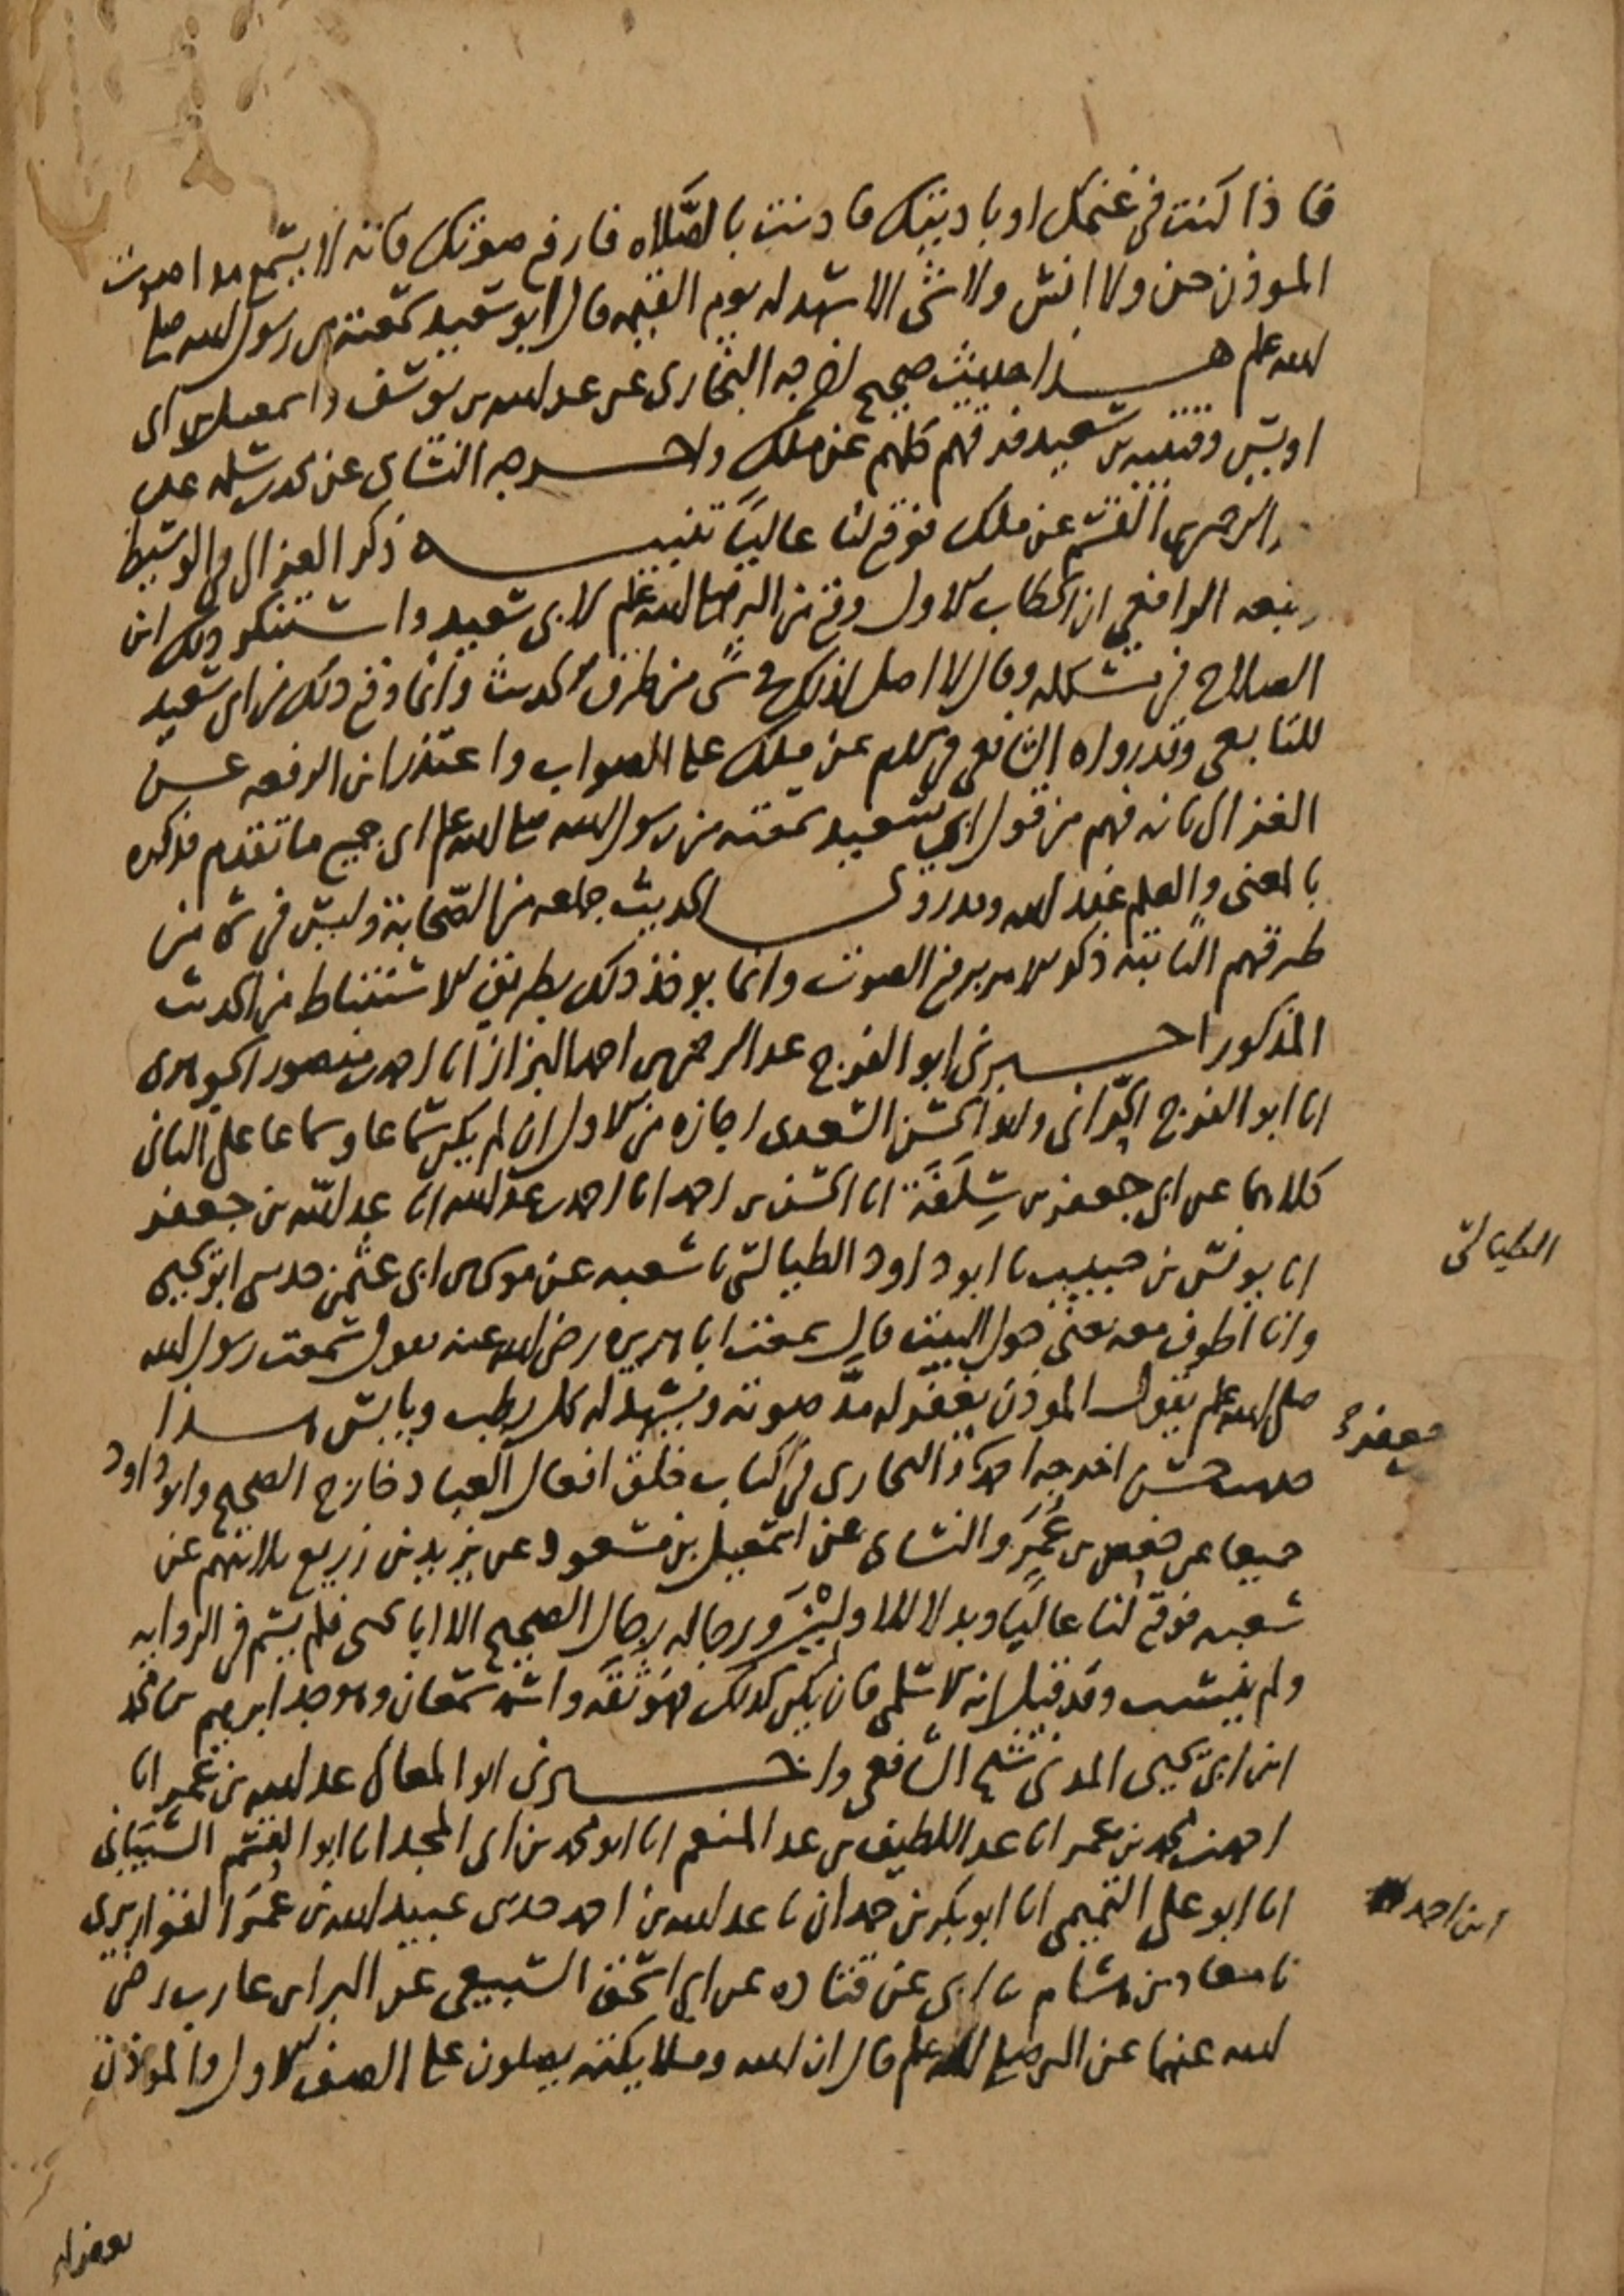 فاذا كنت في غنمك او باديتك فاذنت بالصلاه فارفع صوتك فانه لا يسمع مدا صوت
الموذن جن ولا انس ولا شي الا شهد له يوم القيمه قال ابو سعيد سمعته من رسول الله صلى
الله علم هذا حديث صحيح اخرجه البخارى عن عبد الله بن يوسف واسمعيل بن ابى
اويس وقتيبه بن سعيد فرقهم كلهم عن ملك واخرجه النساى عن محمد بن سلمه عن
ابن القسم عن ملك فوقع لنا عاليًا تنبيه ذكر الغزالى فى الوسيط
وتبعه الرافعي ان الخطاب الاول وقع من النبي صلى الله علم لابى سعيد واستنكر ذلك ابن
الصلاح في مشكله وقال لا اصل لذلك في شى من طرق الحديث وانما وقع ذلك من ابى سعيد
للتابعى وقد رواه الشافعى فى الام عن ملك على الصواب واعتذر ابن الرفعه عن
الغزالى بانه فهم من قول ابي سعيد سمعته من رسول الله صلى الله علم اى جميع ما تقدم فذكره
بالمعنى والعلم عند الله وقد روى الحديث جماعه من الصحابة وليس في شى من
طرقهم الثابته ذكر الامر برفع الصوت وانما يوخذ ذلك بطريق الاستنباط من الحديث
المذكور اخبرنى ابو الفرج عبد الرحمن بن احمد البزاز انا احمد بن منصور الجوهرى
انا ابو الفرج الحراني وابو الحسن السعدى اجازه من الاول ان لم يكن سماعا وسماعا على الثانى
كلاهما عن ابى جعفر بن سِلَفَة انا الحسن بن احمد انا احمد بن عبد الله انا عبد الله بن جعفر
انا يونس بن حبيب نا ابو داود الطيالسى نا شعبه عن موسى بن ابى عثمن حدثنى ابو يحيى
وانا اطوف معه يعنى حول البيت قال سمعت ابا هريره رضى الله عنه يقول سمعت رسول الله
صلى الله علم يقول الموذن يغفر له مدّ صوته ويشهد له كل رطب ويابس هذا
حديث حسن اخرجه احمد والبخارى في كتاب خلق افعال العباد خارج الصحيح وابو داود
جميعا عن حفص بن عُمَرَ والنساى عن اسمعيل بن مسعود عن يزيد بن زريع ثلاثتهم عن
شعبه فوقع لنا عاليًا وبدلا للاولَيْن ورجاله رجال الصحيح الا ابا يحيى فلم يسم في الروايه
ولم ينسب وقد قيل انه الاسلمى فان يكن كذلك فهو ثقة واسمه سمعان وهو جد ابرهيم بن محمد
ابن ابى يحيى المدنى شيخ الشافعى واخبرنى ابو المعالى عبد الله بن عمر انا
احمد بن محمد بن عمر انا عبد اللطيف بن عبد المنعم انا ابو محمد بن ابى المجد انا ابو القسم الشيبانى
انا ابو على التميمى انا ابو بكر بن حمدان نا عبد الله بن احمد حدثنى عبيد الله بن عُمَر القواريرى
نا معاذ بن هشام نا ابى عن قتاده عن ابى اسحق السبيعى عن البرا بن عازب رضى
الله عنهما عن النبي صلى الله علم قال ان الله وملايكته يصلون على الصف الاول والموذن
الطيالسى
ابن احمد
يغفر له